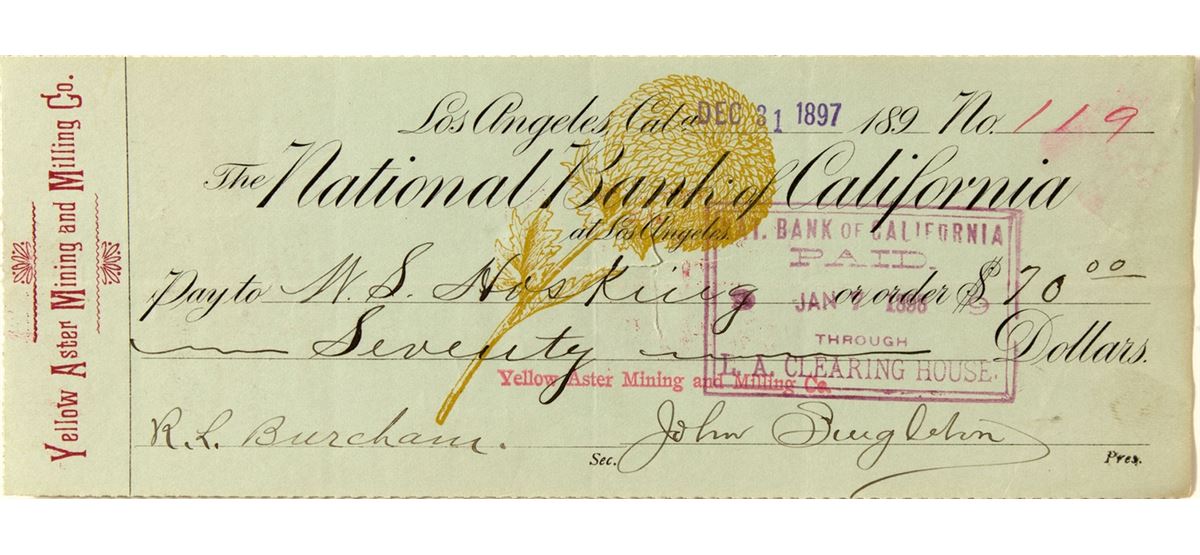 Yellow Aster Mining and Milling Co.
Los Angeles, Cala DEC 31 1897 189 No. 119
The National Bank of California
at Los Angeles
T. BANK OF CALIFORNIA
PAID.
Pay to W. S. Hosking or order $ 70 00
JAN 7 1898
THROUGH
Seventy Dollars.
L. A. CLEARING HOUSE.
Yellow Aster Mining and Milling Co.
R. L. Burcham. Sec. John Singleton Pres.